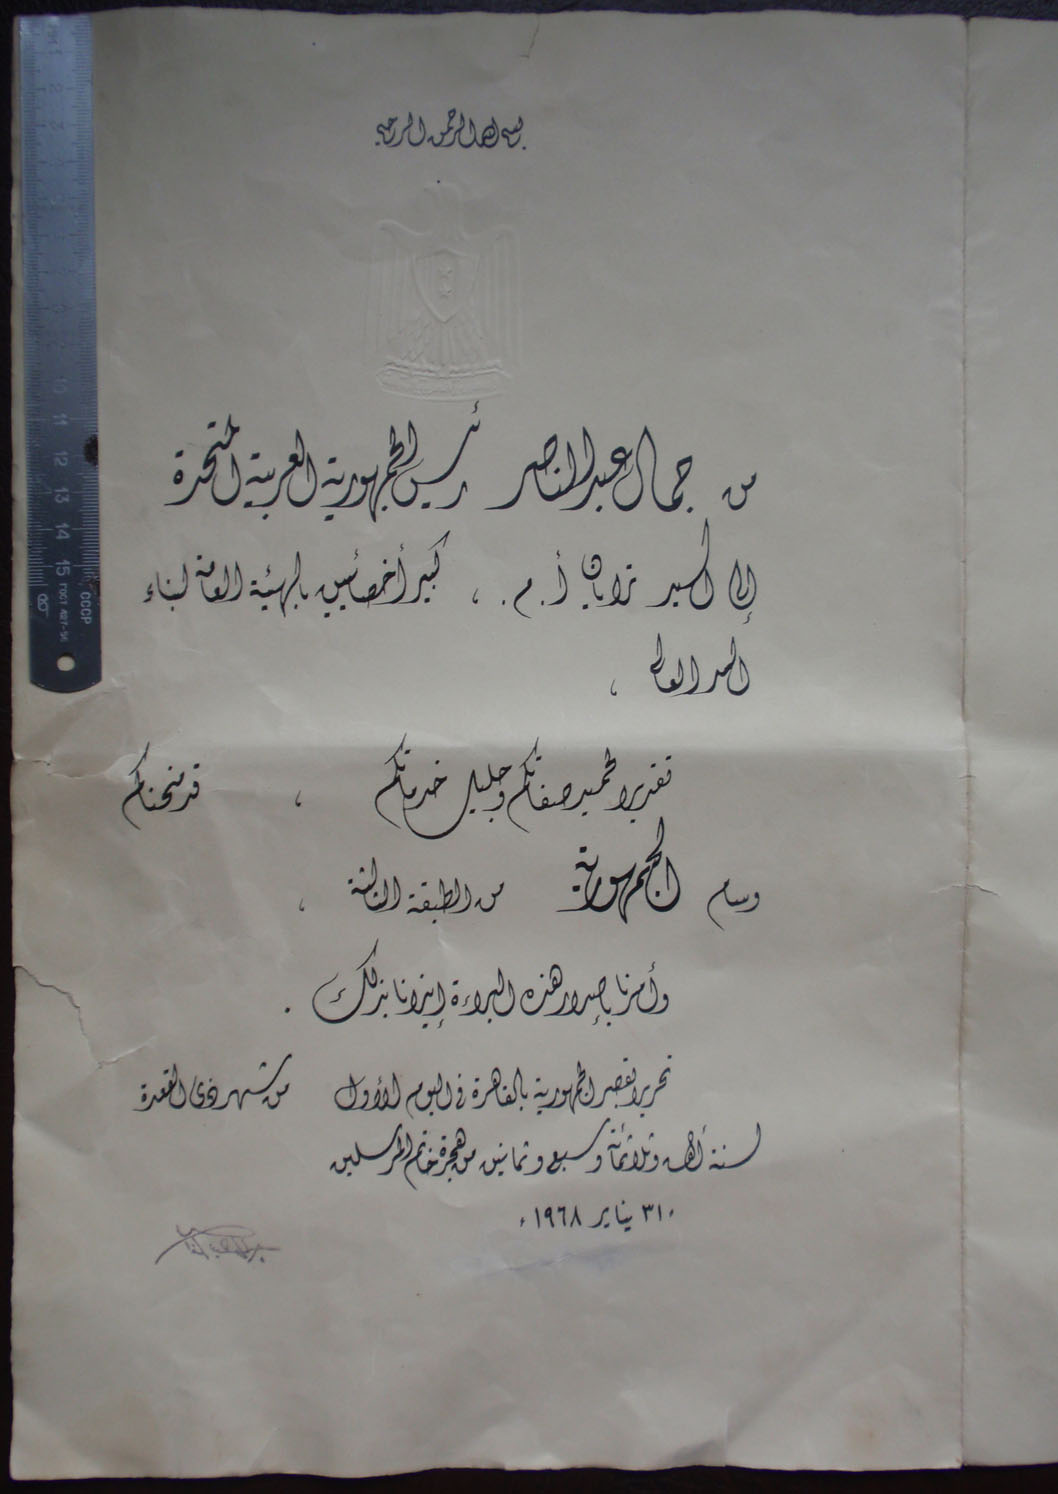 بسم الله الرحمن الرحيم
من جمال عبد الناصر رئيس الجمهورية العربية المتحدة
إلى السيد ترايان أ. م. ، كبير أخصائيين بالهيئة العامة لبناء
السد العالى ،
تقديرا لحميد صفاتكم وجليل خدماتكم ، قد منحناكم
وسام الجمهورية من الطبقة الثالثة ،
وأمرنا بإصدار هذه البراءة إيذانا بذلك .
تحريرا بقصر الجمهورية بالقاهرة فى اليوم الأول من شهر ذى القعدة
لسنة ألف وثلاثمائة وسبع وثمانين من هجرة خاتم المرسلين
٣١ يناير ١٩٦٨
10 11 12 13 14 15
ГОСТ 427-56
СССР